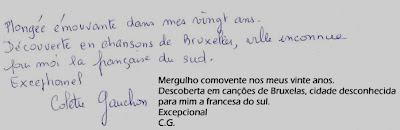 Plongée émouvante dans mes vingt ans.
Découverte en chansons de Bruxelles, ville inconnue
pou moi la française du sud.
Exceptionel
Colette Gauchon
Mergulho comovente nos meus vinte anos.
Descoberta em canções de Bruxelas, cidade desconhecida
para mim a francesa do sul.
Excepcional
C.G.